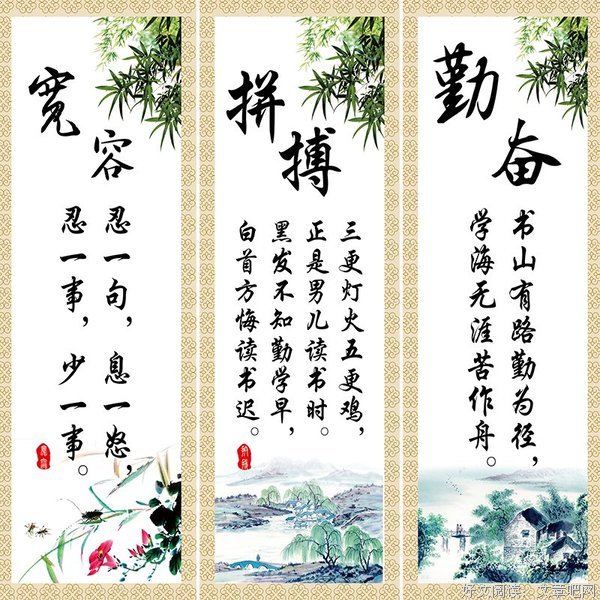 宽容
忍一句，息一怒，
忍一事，少一事。
拼搏
三更灯火五更鸡，
正是男儿读书时。
黑发不知勤学早，
白首方悔读书迟。
勤奋
书山有路勤为径，
学海无涯苦作舟。
好文阅读：文章吧网